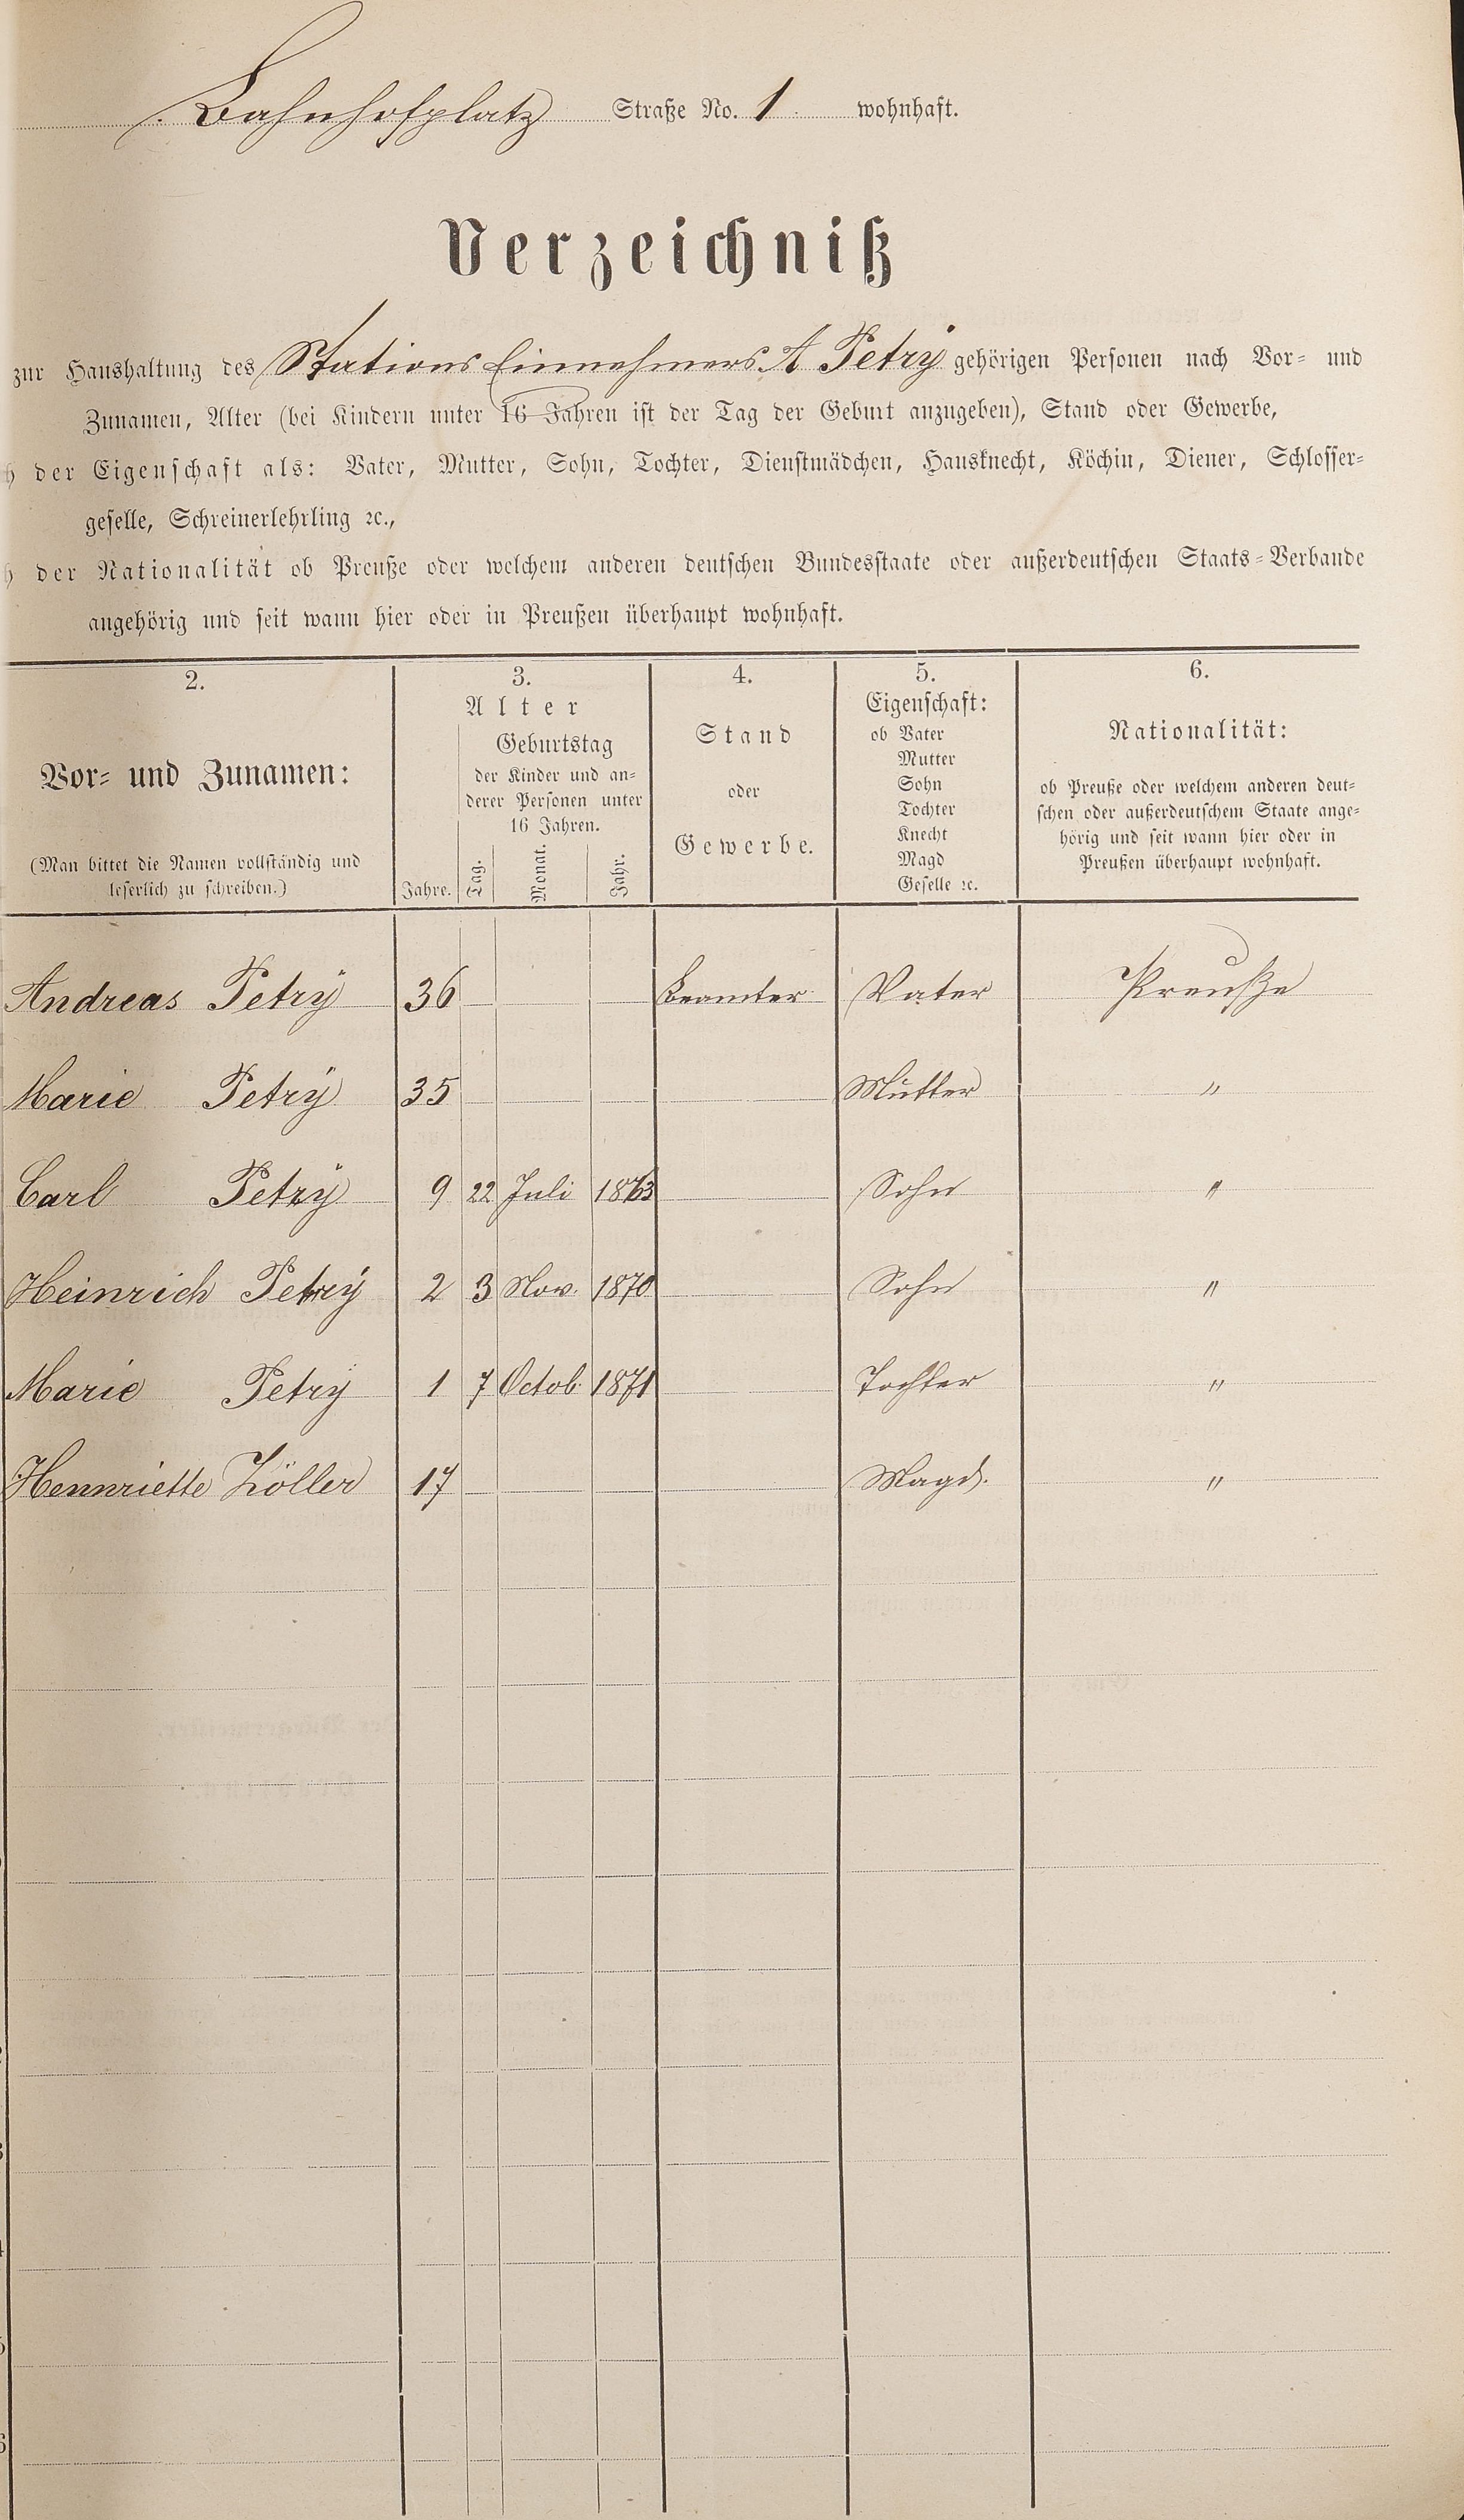 Bahnhofplatz Straße No. 1. wohnhaft.
Verzeichniß
zur Haushaltung des Stations Einnehmers A Petrÿ gehörigen Personen nach Vor- und
Zunamen, Alter (bei Kindern unter 16 Jahren ist der Tag der Geburt anzugeben), Stand oder Gewerbe,
h der Eigenschaft als: Vater, Mutter, Sohn, Tochter, Dienstmädchen, Hausknecht, Köchin, Diener, Schlosser-
geselle, Schreinerlehrling ꝛc.,
h der Nationalität ob Preuße oder welchem anderen deutschen Bundesstaate oder außerdeutschen Staats-Verbande
angehörig und seit wann hier oder in Preußen überhaupt wohnhaft.
2.
Vor- und Zunamen:
(Man bittet die Namen vollständig und
leserlich zu schreiben.)
3.
Alter
Jahre.
Geburtstag
der Kinder und an-
derer Personen unter
16 Jahren.
Tag.
Monat.
Jahr.
4.
Stand
oder
Gewerbe.
5.
Eigenschaft:
ob Vater
Mutter
Sohn
Tochter
Knecht
Magd
Geselle ꝛc.
6.
Nationalität:
ob Preuße oder welchem anderen deut-
schen oder außerdeutschem Staate ange-
hörig und seit wann hier oder in
Preußen überhaupt wohnhaft.
Andreas Petrÿ 36 Beamter Vater Preuße
Marie Petrÿ 35 Mutter "
Carl Petrÿ 9 22 Juli 1863 Sohn "
Heinrich Petrÿ 2 3 Nov. 1870 Sohn "
Marie Petrÿ 1 7 Octob. 1871 Tochter "
Hennriette Zöller 17 Magd. "